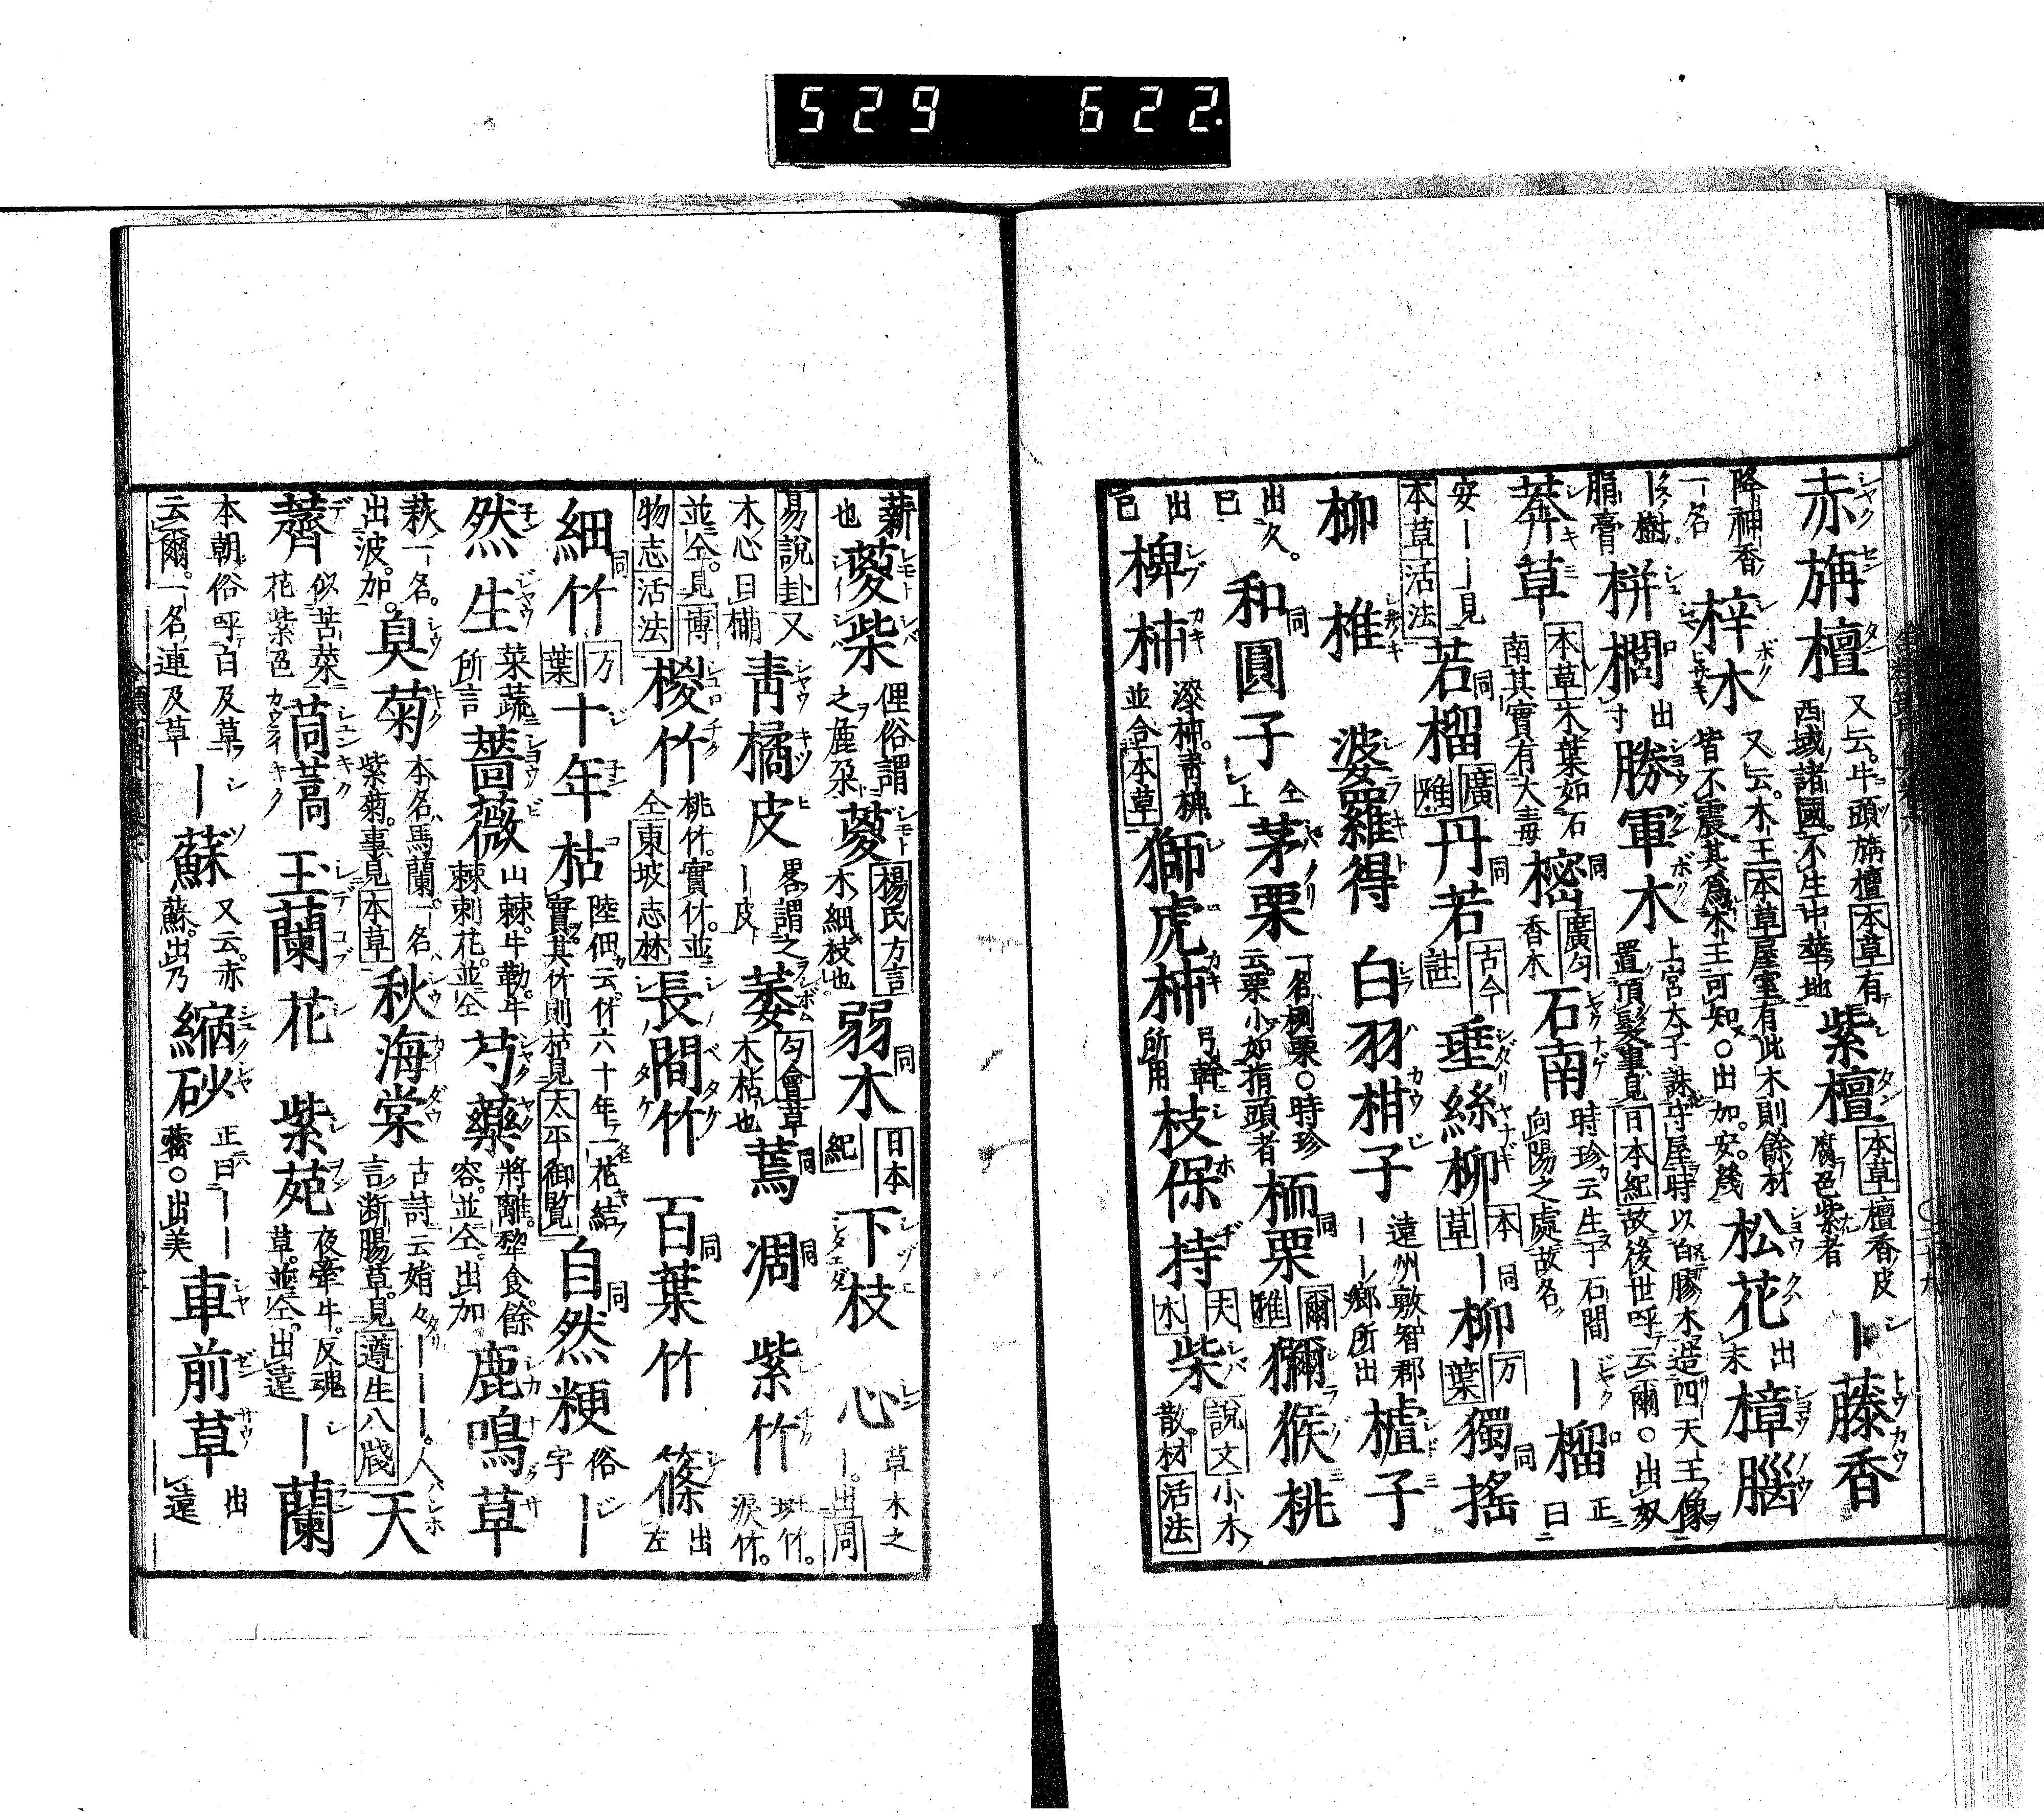 529 622.
赤旃檀 又云。牛頭旃檀本草有西域諸國。不生中華地 紫檀 本草檀香皮腐色紫者 ー藤香
降神香一名 梓木 又云。木王本草屋室有此木則餘材皆不震其為木王可知。○出加。安。幾 松花 出末 樟腦
ー樹膓膏 栟櫚 出寸 勝軍木 上宮太子誅守屋時以白膠木造四天王像置頂髮事見日本紀故後世呼云爾。○出奴
莽草 本草木葉如石南其實有大毒 樒 同 廣匀香木 石南 時珍云生于石間向陽之處故名 ー榴 正曰
安ーー見本草活法 若榴 同 廣雅 丹若 同 古今註 垂絲柳 本草 ー柳 同 万葉 獨搖 同
柳 椎 婆羅得 白羽柑子 遠州敷智郡ーー鄉所出 樝子
出久。巳 和圓子 同 仝上 茅栗 一名栵栗○時珍云栗小如指頭者 栭栗 同 爾雅 獼猴桃
出巳 椑柿 漆柿。青椑。並仝本草 獅虎柿 弓幹所用 枝保持 天木 柴 說文小木散材活法
薪也 蔆柴 俚俗謂之麁朶 蔆 楊氏方言木細枝也 弱木 同 日本紀 下枝 心 草木之ー。出周
易說卦又木心曰槆 青橘皮 畧謂之ー皮 萎 匀會草木枯也 蔫 同 凋 同 紫竹 斑竹。淚竹。
並仝。見博物志活法 椶竹 桃竹。實竹。並仝東坡志林 長間竹 百葉竹 同 篠 出左
細竹 同 万葉 十年枯 陸佃云。竹六十年一花結實其竹則枯見太平御覧 自然粳 同 俗字 ー
然生 菜蔬所言 薔薇 山棘。牛勒。牛棘。刺花。並仝 芍藥 將離。犂食。餘容。並仝。出加 鹿鳴草
萩一名。出波。加。 臭菊 本名馬蘭。一名紫菊。事見本草 秋海棠 古詩云媋々ーーー。人言断腸草。見遵生八牋 天
薺 似苦菜花紫色 茼蒿 玉蘭花 紫苑 夜牽牛。反魂草。並仝。出遠 ー蘭
本朝俗呼白及草云爾。一名連及草 ー蘇 又云。赤蘇。出乃 縮砂 正曰ーー蔤。○出美 車前草 出遠